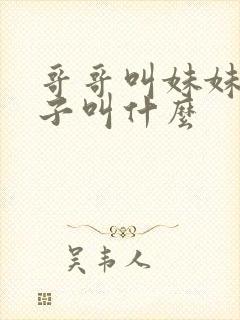 哥哥叫妹妹
子叫什麼
吴韦人